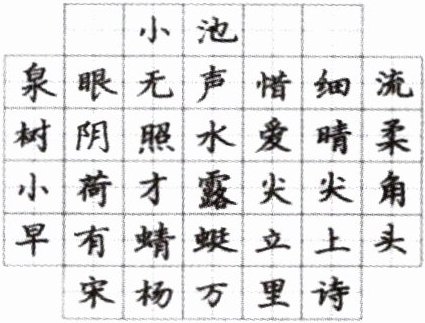 小池
泉眼无声惜细流
树阴照水爱晴柔
小荷才露尖尖角
早有蜻蜓立上头
宋杨万里诗